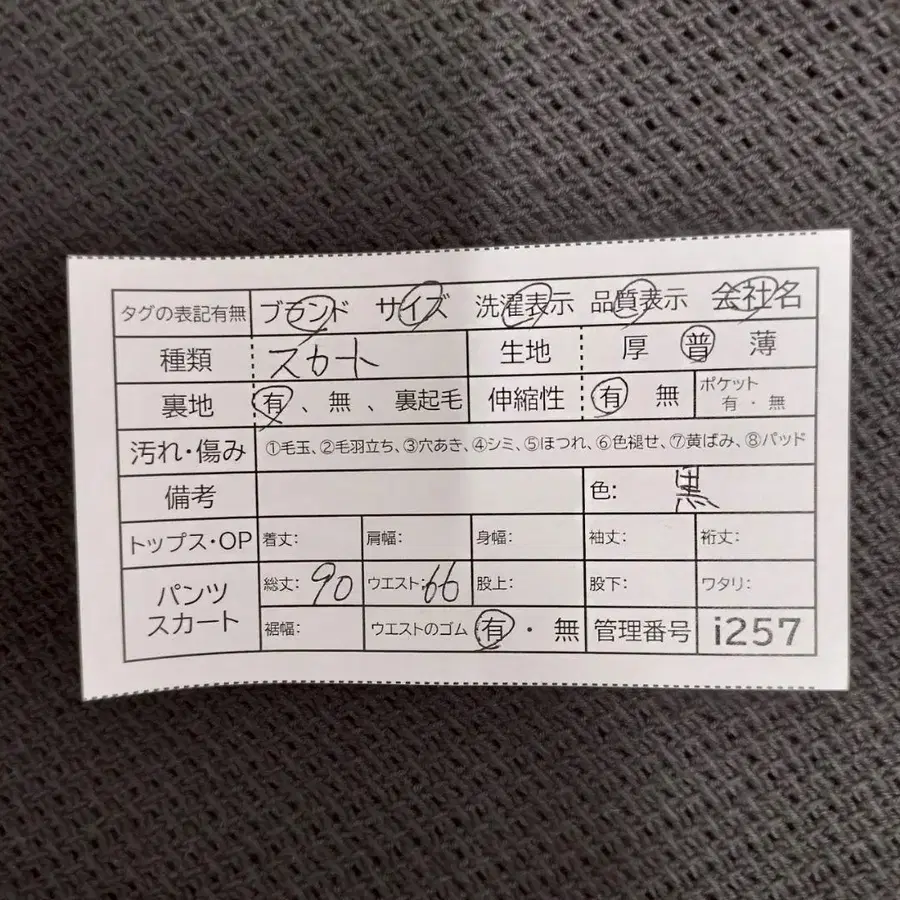 タグの表記有無 ブランド サイズ 洗濯表示 品質表示 会社名
種類 スカート 生地 厚 普 薄
裏地 有 、 無 、 裏起毛 伸縮性 有 無 ポケット 有 ・ 無
汚れ・傷み ①毛玉、②毛羽立ち、③穴あき、④シミ、⑤ほつれ、⑥色褪せ、⑦黄ばみ、⑧パッド
備考 色: 黒
トップス・OP 着丈: 肩幅: 身幅: 袖丈: 裄丈:
パンツ スカート 総丈: 90 ウエスト: 66 股上: 股下: ワタリ:
裾幅: ウエストのゴム 有 ・ 無 管理番号 i257